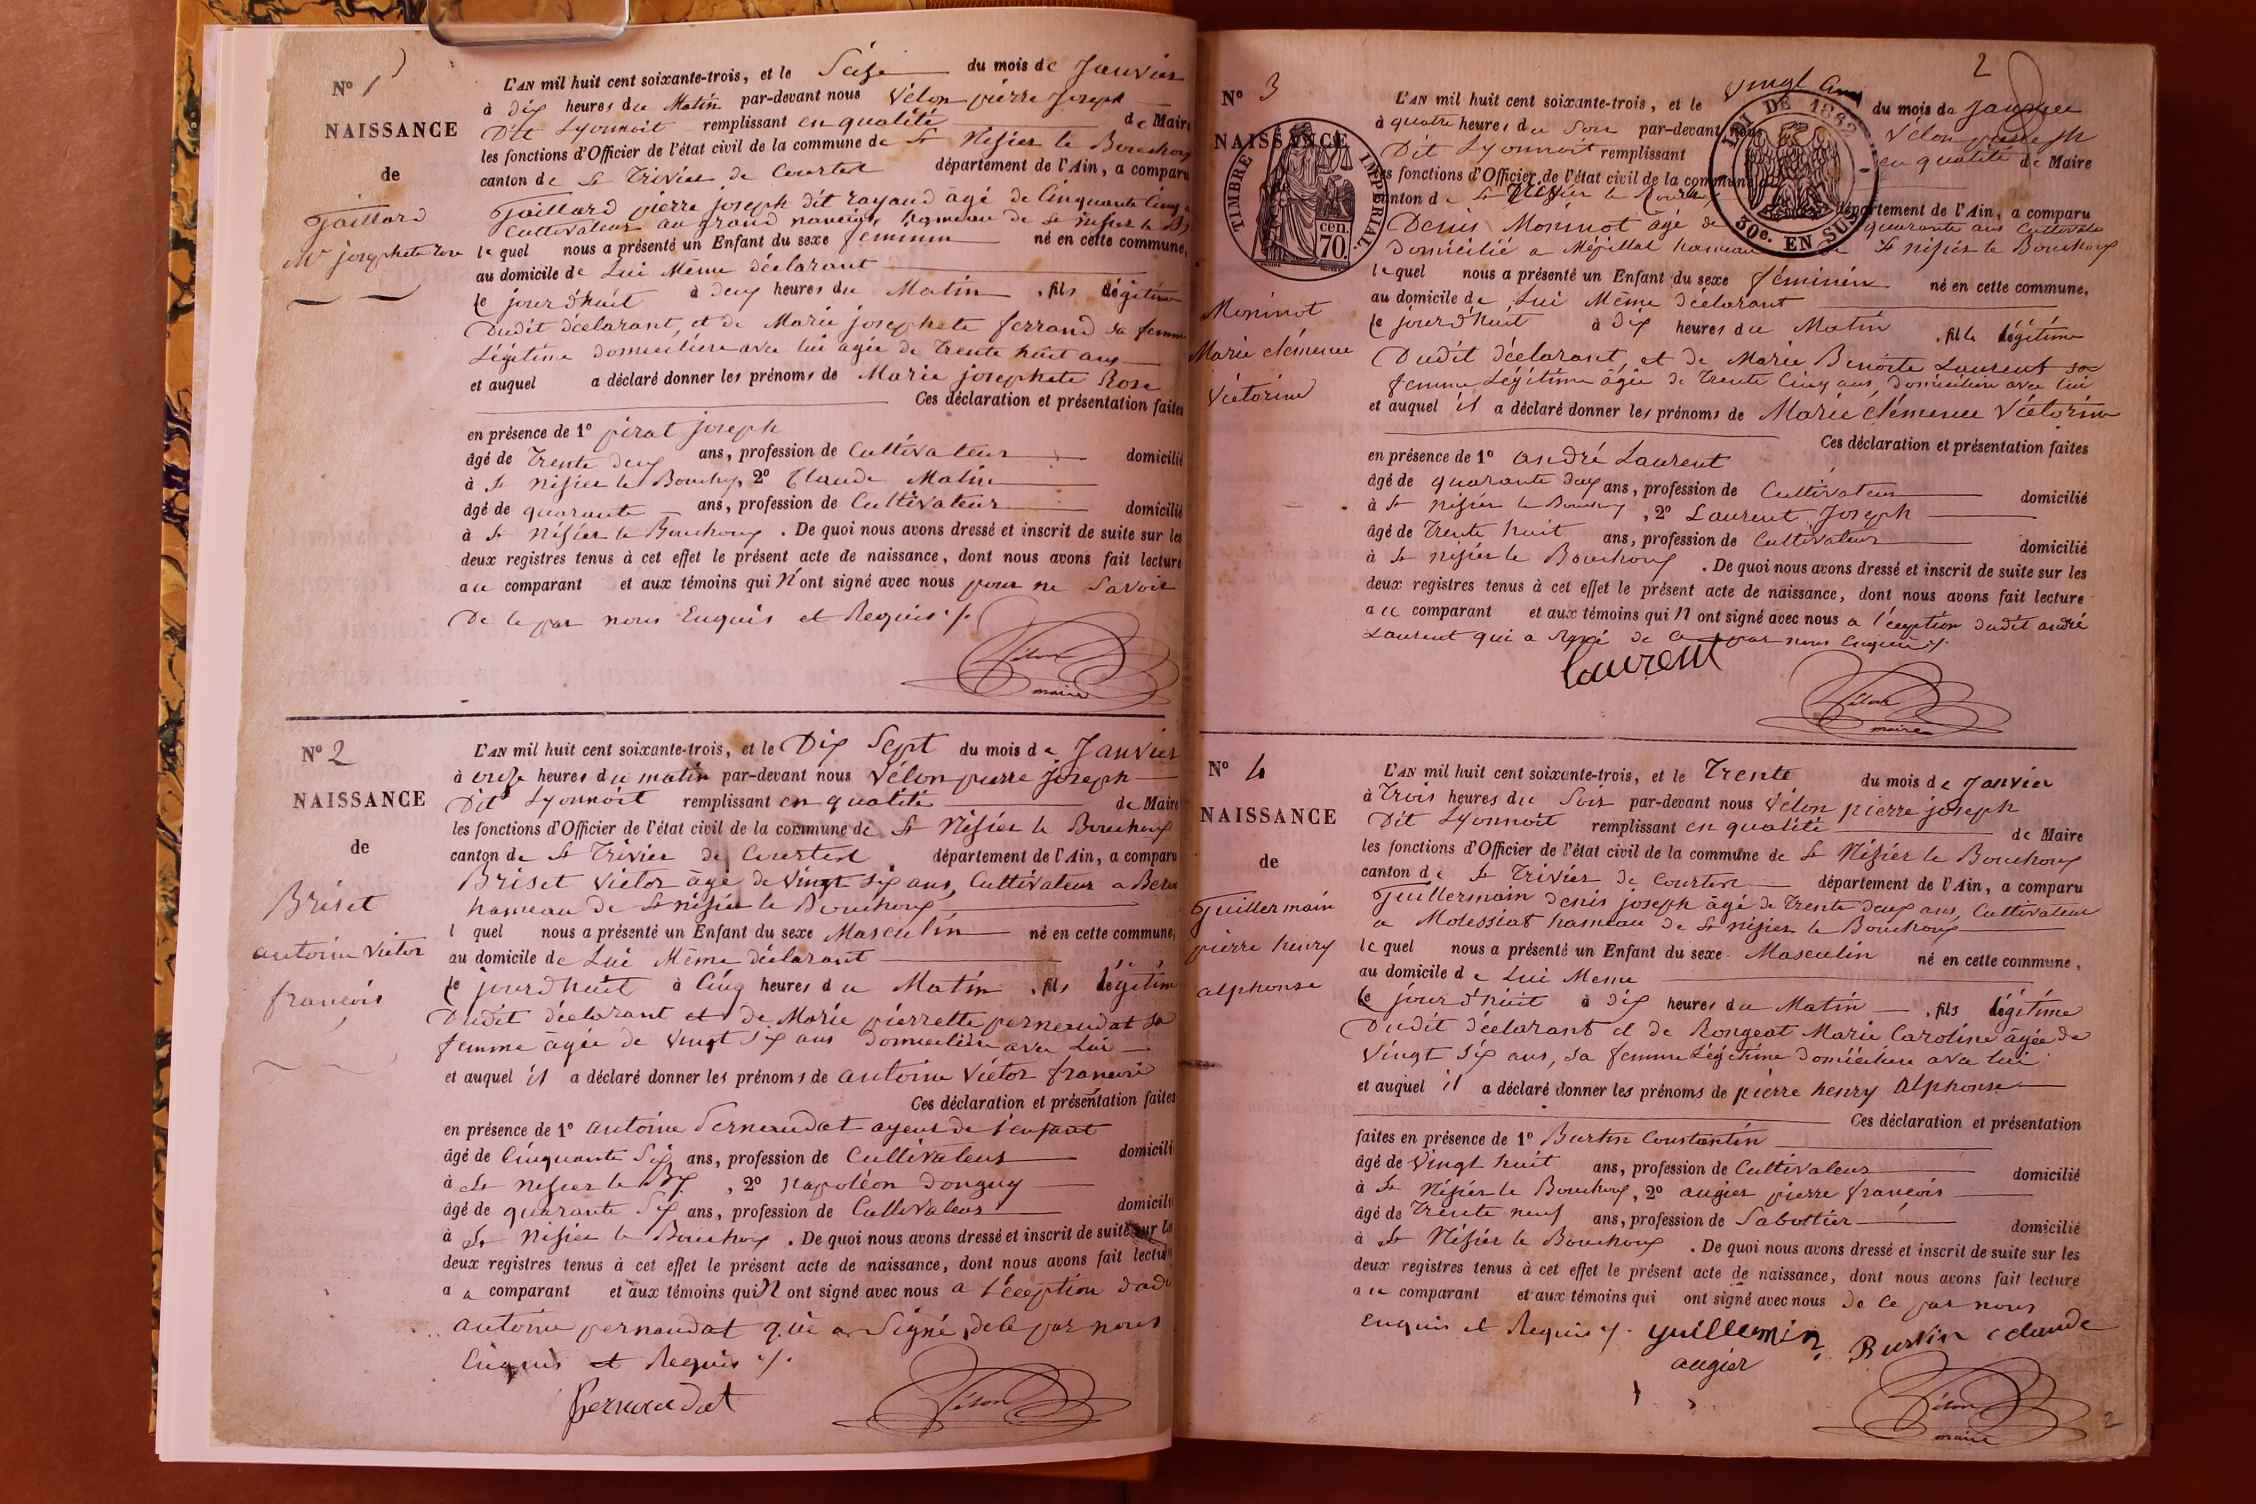 N° 1
NAISSANCE
de
Gaillard
Mie josephete Rose
L'AN mil huit cent soixante-trois, et le Seize du mois de Janvier
à dix heures du Matin par-devant nous Vélon pierre Joseph
Dit Lyonnoit remplissant en qualité de Maire
les fonctions d'Officier de l'état civil de la commune de St Nisier le Bouchoux
canton de St Trivier de Courtes département de l'Ain, a comparu
Gaillard pierre joseph dit rayaud âgé de Cinquante Cinq
Cultivateur au grand hameau de St Nisier le
le quel nous a présenté un Enfant du sexe féminin né en cette commune,
au domicile de Lui Même déclarant
le jourd'huit à deux heures du Matin , fils légitime
Dudit déclarant, et de Marie josephete ferrand sa femme
Légitime domicilière avec lui agée de Trente huit ans
et auquel a déclaré donner les prénoms de Marie josephete Rose
Ces déclaration et présentation faites
en présence de 1° pirat joseph
âgé de Trente deux ans, profession de Cultivateur domicilié
à St Nisier le Bouchoux, 2° Claude Matin
âgé de quarante ans, profession de Cultivateur domicilié
à St Nisier le Bouchoux . De quoi nous avons dressé et inscrit de suite sur les
deux registres tenus à cet effet le présent acte de naissance, dont nous avons fait lecture
au comparant et aux témoins qui N'ont signé avec nous pour ne Savoir
De ce par nous Enquis et Requis ./.
Vélon
maire
N° 2
NAISSANCE
de
Briset
antoine Victor
francois
L'AN mil huit cent soixante-trois, et le Dix Sept du mois de Janvier
à onze heures du matin par-devant nous Vélon pierre Joseph
Dit Lyonnoit remplissant en qualité de Maire
les fonctions d'Officier de l'état civil de la commune de St Nisier le Bouchoux
canton de St Trivier de Courtes département de l'Ain, a comparu
Briset Victor âgé de Vingt Six ans, Cultivateur a
hameau de St nisier le Bouchoux
l quel nous a présenté un Enfant du sexe Masculin né en cette commune,
au domicile de Lui Même déclarant
le jourd'huit à Cinq heures du Matin , fils légitime
Dudit déclarant et de Marie pierrette pernaudat sa
femme âgée de Vingt Six ans Domicilière avec Lui
et auquel il a déclaré donner les prénoms de antoine Victor francois
Ces déclaration et présentation faites
en présence de 1° antoine Pernaudat ayeul de l'enfant
âgé de Cinquante Six ans, profession de Cultivateur domicilié
à St Nisier le Bx , 2° Napoléon Donguy
âgé de quarante Six ans, profession de Cultivateur domicilié
à St Nisier le Bouchoux . De quoi nous avons dressé et inscrit de suite sur les
deux registres tenus à cet effet le présent acte de naissance, dont nous avons fait lecture
a comparant et aux témoins qui N ont signé avec nous a l'éception dudit
antoine pernaudat qui a Signé, de ce par nous
Enquis et Requis ./.
Pernaudat
Vélon
2
N° 3
NAISSANCE
TIMBRE IMPÉRIAL.
cen.
70.
LOI DE 1862
30e. EN SUS
Moninot
Marie clémence
Victorine
L'AN mil huit cent soixante-trois, et le vingt Cinq du mois de Janvier
à quatre heures du Soir par-devant nous Vélon joseph
Dit Lyonnoit remplissant en qualité de Maire
les fonctions d'Officier de l'état civil de la commune
canton de St département de l'Ain, a comparu
Denis Moninot âgé de quarante ans Cultivateur
domicilié a Mépillat hameau de St Nisier le Bouchoux
le quel nous a présenté un Enfant du sexe féminin né en cette commune,
au domicile de Lui Même déclarant
le jourd'huit à dix heures du Matin , fille légitime
Dudit déclarant, et de Marie Benoite Laurent sa
femme Légitime âgée de Trente Cinq ans, Domicilière avec lui
et auquel il a déclaré donner les prénoms de Marie clémence Victorine
Ces déclaration et présentation faites
en présence de 1° andré Laurent
âgé de quarante deux ans, profession de Cultivateur domicilié
à St Nisier le Bouchoux , 2° Laurent Joseph
âgé de Trente huit ans, profession de Cultivateur domicilié
à St nisier le Bouchoux . De quoi nous avons dressé et inscrit de suite sur les
deux registres tenus à cet effet le présent acte de naissance, dont nous avons fait lecture
au comparant et aux témoins qui N ont signé avec nous a l'éception dudit andré
Laurent qui a signé de ce par nous Enquis ./.
Laurent
Vélon
maire
N° 4
NAISSANCE
de
Guillermain
pierre henry
alphonse
L'AN mil huit cent soixante-trois, et le Trente du mois de Janvier
à Trois heures du Soir par-devant nous Vélon pierre joseph
Dit Lyonnoit remplissant en qualité de Maire
les fonctions d'Officier de l'état civil de la commune de St Nisier le Bouchoux
canton de St Trivier de Courtes département de l'Ain, a comparu
Guillermain denis joseph âgé de Trente deux ans, Cultivateur
a Molessiat hameau de St nisier le Bouchoux
le quel nous a présenté un Enfant du sexe Masculin né en cette commune,
au domicile de Lui Meme
le jourd'huit à dix heures du Matin , fils légitime
Dudit déclarant et de Rongeat Marie Caroline âgée de
Vingt Six ans, sa femme Légitime Domicilière avec lui
et auquel il a déclaré donner les prénoms de pierre henry Alphonse
Ces déclaration et présentation
faites en présence de 1° Burtin Constantin
âgé de Vingt huit ans, profession de Cultivateur domicilié
à St Nisier le Bouchoux, 2° augier pierre francois
âgé de Trente neuf ans, profession de Sabottier domicilié
à St Nisier le Bouchoux . De quoi nous avons dressé et inscrit de suite sur les
deux registres tenus à cet effet le présent acte de naissance, dont nous avons fait lecture
au comparant et aux témoins qui ont signé avec nous de ce par nous
enquis et Requis ./. guillemin Burtin Claude
augier
Vélon
maire
2